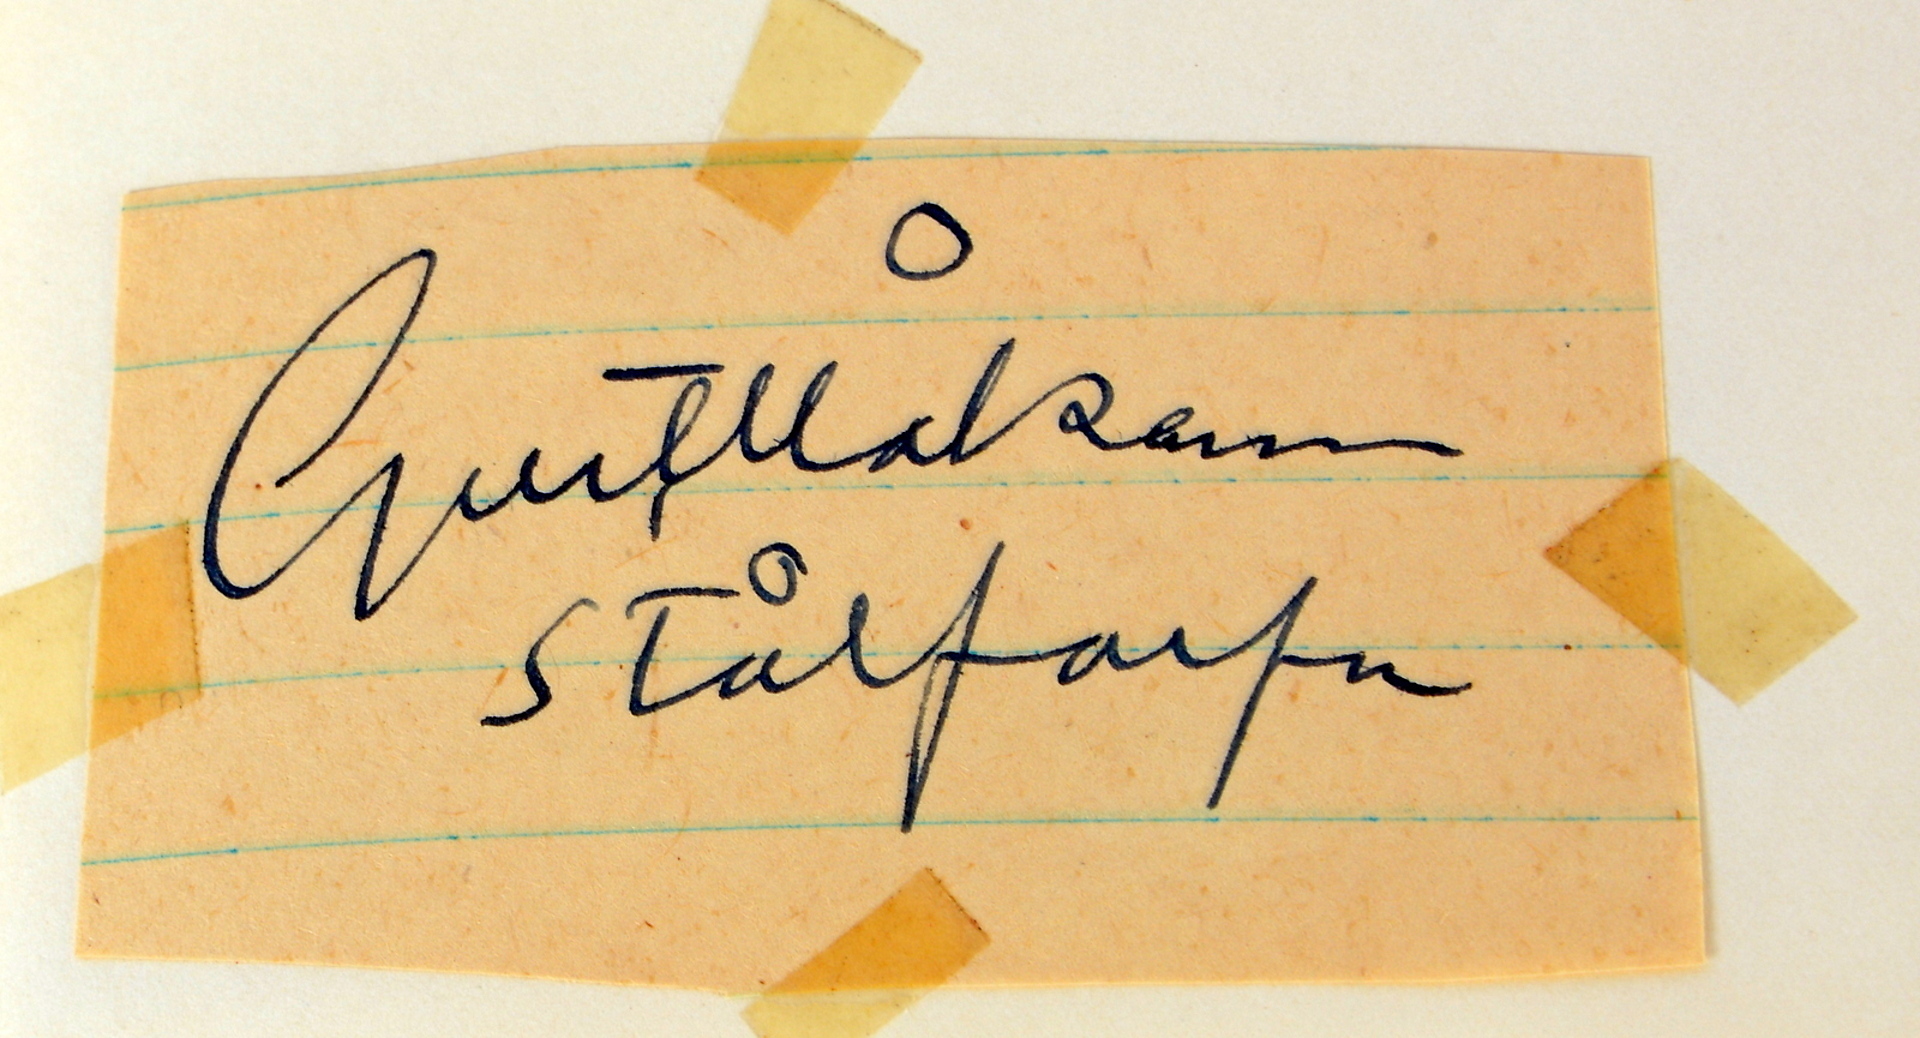 Gust Håkansson
stålfarfar